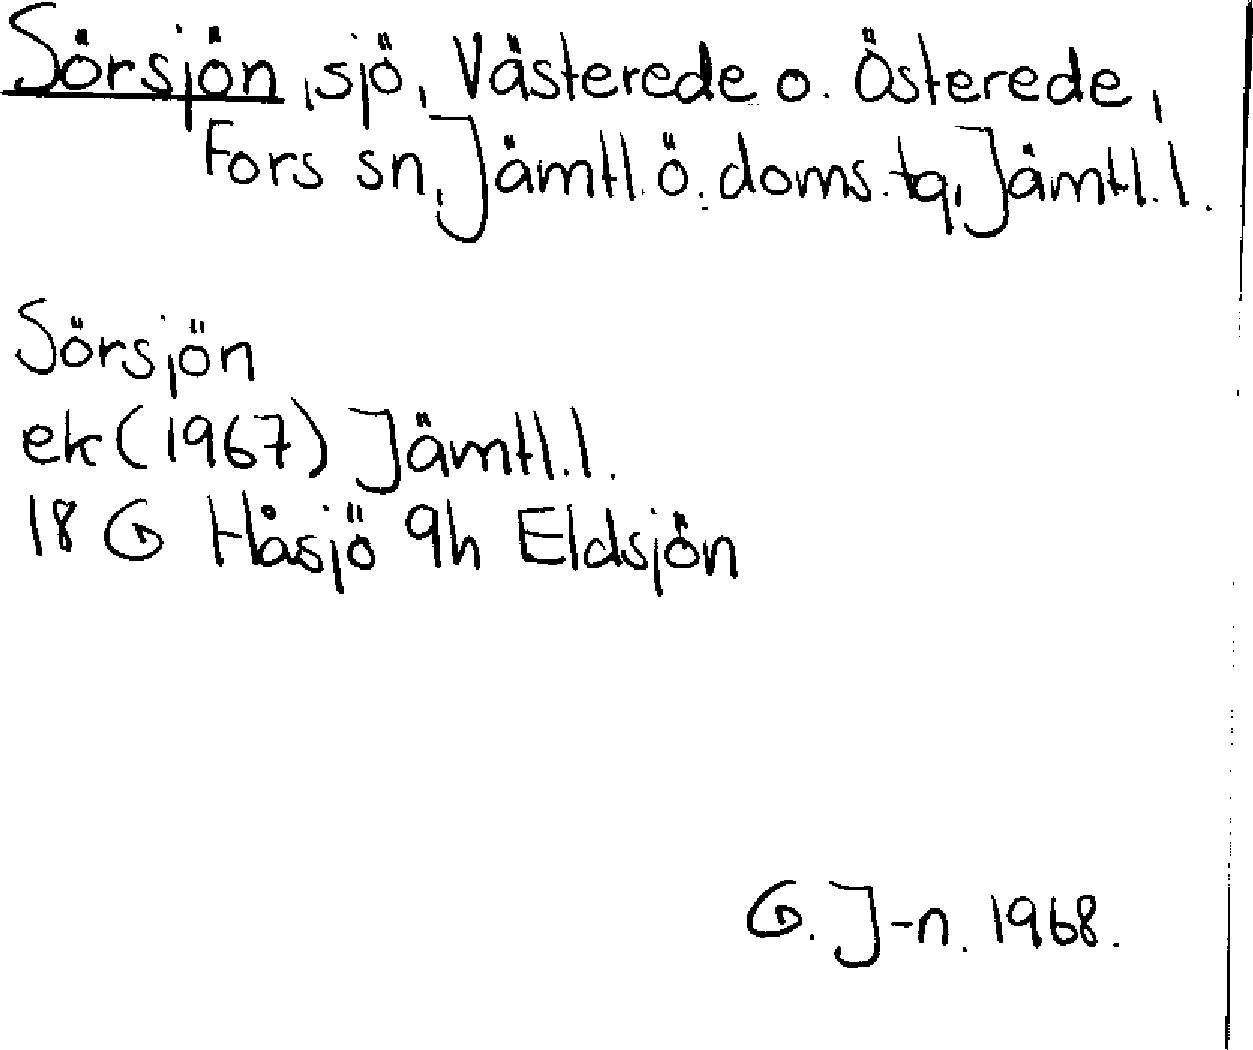 Sörsjön, sjö, Västerede o. Österede,
Fors sn, Jämtl. ö. doms. tg, Jämtl. l.
Sörsjön
ek (1967) Jämtl. l.
18 G Håsjö 9h Eldsjön
G. J-n. 1968.